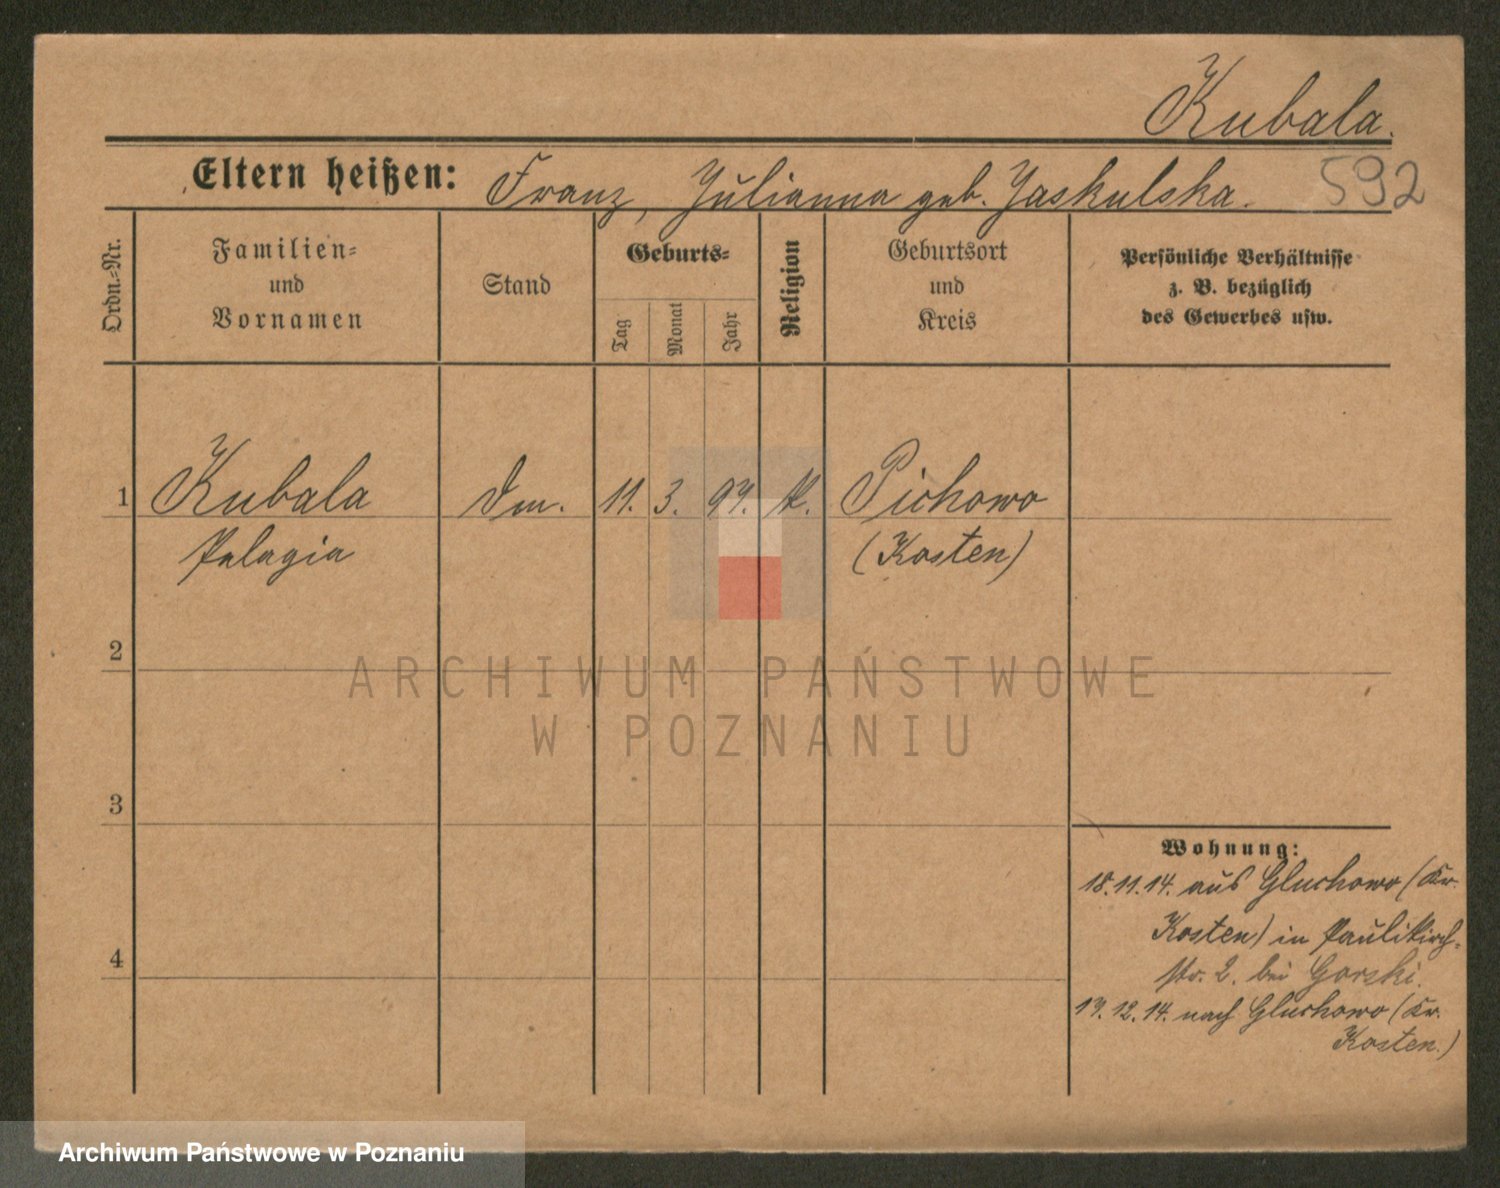 Kubala.
Eltern heißen: Franz, Julianna geb. Jaskulska.
592
Ordn.=Nr.
Familien=
und
Vornamen
Stand
Geburts=
Tag
Monat
Jahr
Religion
Geburtsort
und
Kreis
Persönliche Verhältnisse
z. B. bezüglich
des Gewerbes usw.
1 Kubala 11. 3. 97. k. Pichowo
Pelagia (Kosten)
2
ARCHIWUM PAŃSTWOWE
W POZNANIU
3
Wohnung:
18.11.14. aus Gluchowo (Kr.
Kosten) in Paulikirch=
4
str. 2. bei Gorski.
17.12.14. nach Gluchowo (Kr.
Kosten.)
Archiwum Państwowe w Poznaniu